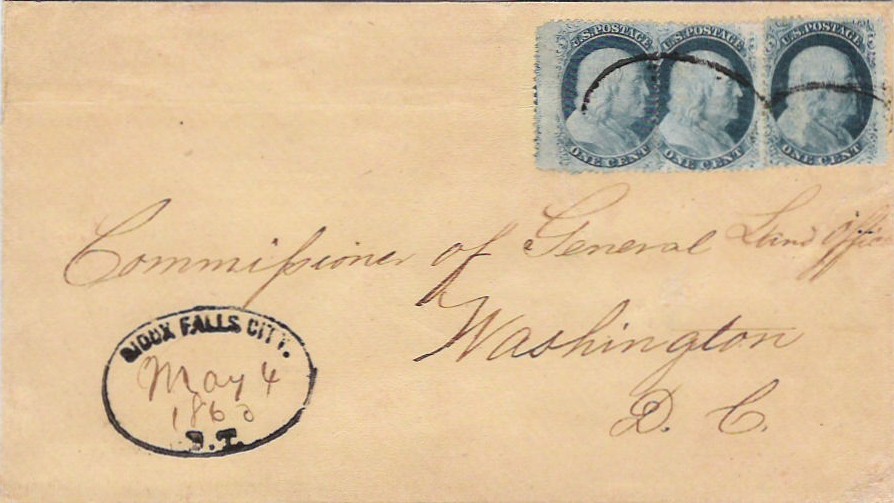 U.S. POSTAGE U.S. POSTAGE U.S. POSTAGE
ONE CENT ONE CENT ONE CENT
Commiſsioner of General Land Office
Washington
D. C.
SIOUX FALLS CITY.
May 4
1860
D.T.